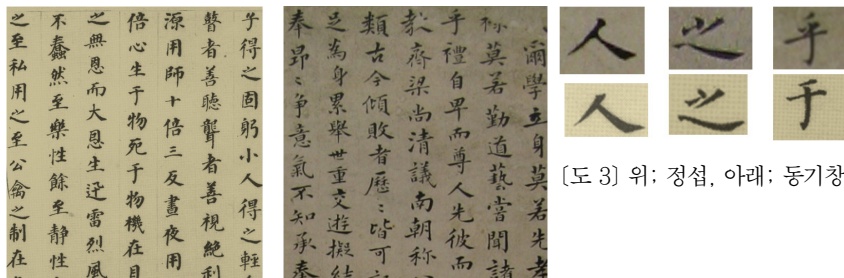 子得之固躬小人得之輕
瞽者善聽聾者善視絕利
源用師十倍三反晝夜用
倍心生于物死于物機在目
之無恩而大恩生迅雷烈風
不蠢然至樂性餘至静性
之至私用之至公禽之制在
爾學立身莫若先孝
祿莫若勤道藝嘗聞諸
乎禮自卑而尊人先彼而
教齊梁尚清議南朝稱
類古今傾敗者歷〻皆可
足為身累舉世重交遊擬結
奉昂〻爭意氣不知承奉
人 之 乎
人 之 于
〔도 3〕 위; 정섭, 아래; 동기창